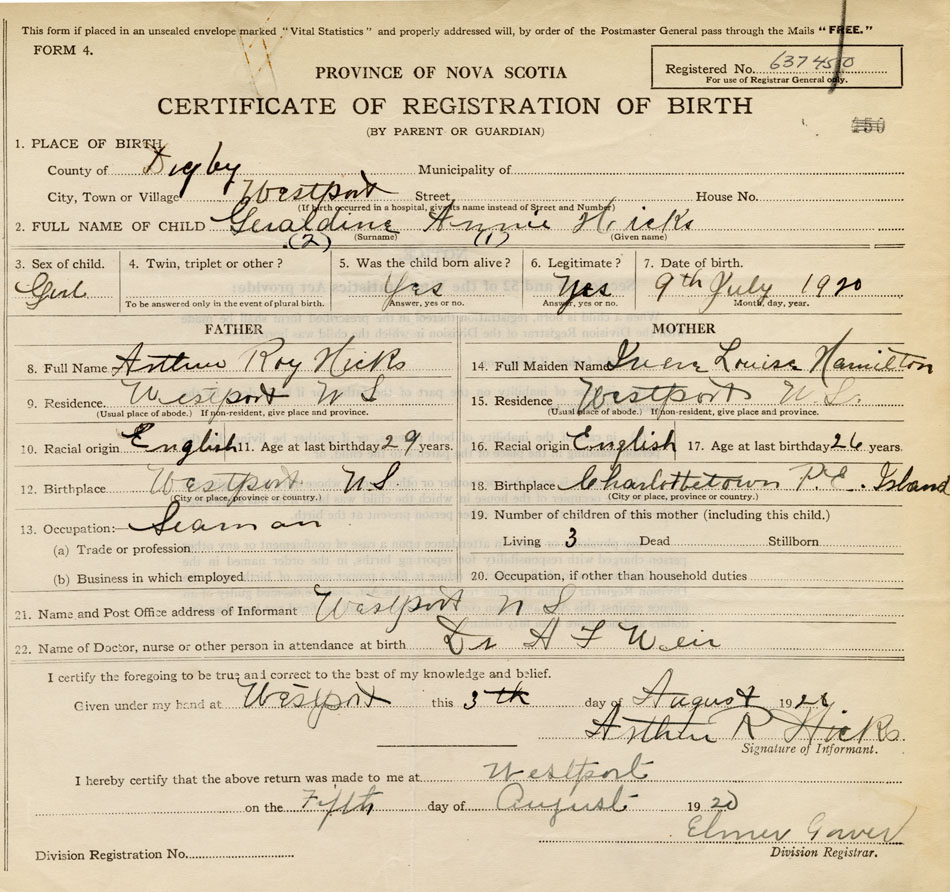 This form if placed in an unsealed envelope marked "Vital Statistics" and properly addressed will, by order of the Postmaster General pass through the Mails "FREE."
FORM 4.
Registered No. 637450
For use of Registrar General only.
PROVINCE OF NOVA SCOTIA
CERTIFICATE OF REGISTRATION OF BIRTH
(BY PARENT OR GUARDIAN)
250
1. PLACE OF BIRTH
County of Digby Municipality of
City, Town or Village Westport Street House No.
(If birth occurred in a hospital, give its name instead of Street and Number)
2. FULL NAME OF CHILD Geraldine Annie Hicks
(2) (Surname) (1) (Given name)
3. Sex of child. 4. Twin, triplet or other? 5. Was the child born alive? 6. Legitimate? 7. Date of birth.
Girl Yes Yes 9th July 1920
To be answered only in the event of plural birth. Answer, yes or no. Answer, yes or no. Month, day, year.
FATHER MOTHER
8. Full Name Arthur Roy Hicks 14. Full Maiden Name Louise Hamilton
9. Residence. Westport N S 15. Residence Westport N.S.
(Usual place of abode.) If non-resident, give place and province. (Usual place of abode.) If non-resident, give place and province.
10. Racial origin English 11. Age at last birthday 29 years. 16. Racial origin English 17. Age at last birthday 26 years.
12. Birthplace Westport NS 18. Birthplace Charlottetown P.E. Island
(City or place, province or country.) (City or place, province or country.)
13. Occupation: Seaman 19. Number of children of this mother (including this child.)
(a) Trade or profession Living 3 Dead Stillborn
(b) Business in which employed 20. Occupation, if other than household duties
21. Name and Post Office address of Informant Westport N S
22. Name of Doctor, nurse or other person in attendance at birth Dr H F Weir
I certify the foregoing to be true and correct to the best of my knowledge and belief.
Given under my hand at Westport this 3th day of August 192
Arthur R Hicks
Signature of Informant.
I hereby certify that the above return was made to me at Westport
on the Fifth day of August 1920
Elmer
Division Registrar.
Division Registration No.